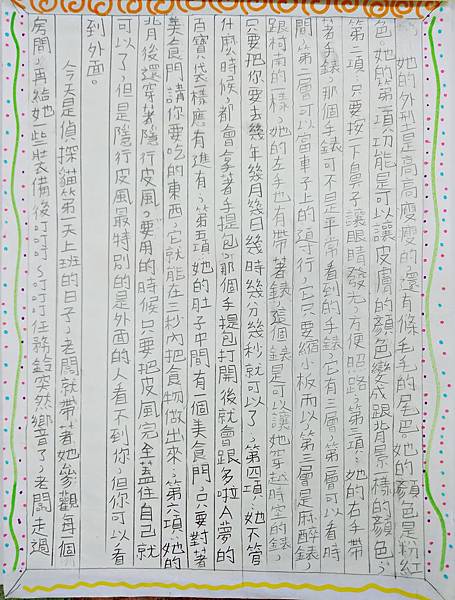 她的外型是高高瘦瘦的還有條毛毛的尾巴。她的顏色是粉紅
色。她的第一項功能是可以讓皮膚的顏色變成跟背景一樣的顏色,
第二項,只要按一下鼻子讓眼睛發光,方便照路,第三項,她的右手帶
著手錶,那個手錶可不是平常看到的手錶,它有三層,第一層可以看時
間,第二層可以當車子上的導行,它只要縮小板而以,第三層是麻醉錶,
跟柯南的一樣,她的左手也有帶著錶,這個錶是可以讓她穿越時空的錶,
只要把你要去幾年幾月幾日幾時幾分幾秒就可以了,第四項,她不管
什麼時候,都會拿著手提包,那個手提包打開後就會跟多啦A夢的
百寶袋一樣應有進有,第五項她的肚子中間有一個美食門,只要對著
美食門請你要吃的東西,它就能在三秒內把食物做出來,第六項,她的
背後還穿著隱行皮風,要用的時候只要把皮風完全蓋住自己就
可以了,但是隱行皮風最特別的是外面的人看不到你,但你可以看
到外面。
今天是偵探貓第一天上班的日子,老闆就帶著她參觀每個
房間,再給她一些裝備後叮叮~叮叮任務鈴突然響了,老闆走過